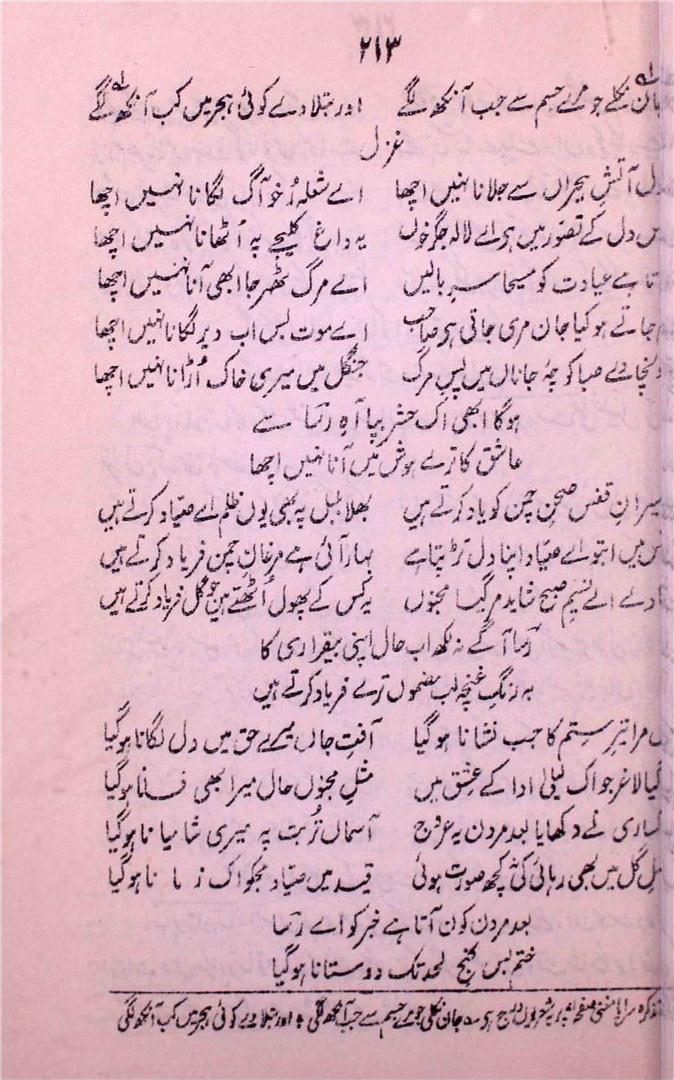 ۲۱۳
جان نکلے جو مرے جسم سے جب آنکھ لگے اور بتلا دے کوئی ہجر میں کب آنکھ لگے
غزل
دل آتشِ ہجراں سے جلانا نہیں اچھا اے شعلہ رُخو آگ لگانا نہیں اچھا
س دل کے تصور میں ہی اے لالہ جگر خوں یہ داغ کلیجے پہ اُٹھانا نہیں اچھا
تا ہے عیادت کو مسیحا سرِ بالیں اے مرگ ٹھہر جا ابھی آنا نہیں اچھا
جاتے ہو کیا جان مری جاتی ہی صاحب اے موت بس اب دیر لگانا نہیں اچھا
نچا دے صبا کوچۂ جاناں میں پسِ مرگ جنگل میں میری خاک اُڑانا نہیں اچھا
ہوگا ابھی اک حشر بپا آہِ رسا سے
عاشق کا ترے ہوش میں آنا نہیں اچھا
سیرانِ قفس صحنِ چمن کو یاد کرتے ہیں بھلا بلبل پہ بھی یوں ظلم اے صیاد کرتے ہیں
س میں ابتو اے صیاد اپنا دل تڑپتا ہے بہار آئی ہے مرغانِ چمن فریاد کرتے ہیں
دے اے نسیمِ صبح شاید مر گیا مجنوں یہ کس کے پھول اُٹھتے ہیں جو گل فریاد کرتے ہیں
رسا آگے نہ لکھ اب حال اپنی بیقراری کا
بہ رنگِ غنچہ لب مضموں ترے فریاد کرتے ہیں
مرا تیرِ ستم کا جب نشانا ہوگیا آفتِ جاں میرے حق میں دل لگانا ہوگیا
گیا لاغر جو اک لیلیٰ ادا کے عشق میں مثلِ مجنوں حال میرا بھی فسانا ہوگیا
کساری نے دکھایا بعد مردن یہ عروج آسماں تُربت پہ میری شامیانا ہوگیا
صلِ گل میں بھی رہائی کی نہ کچھ صورت ہوئی قید میں صیاد مجکو اک زمانا ہوگیا
بعد مردن کون آتا ہے خبر کو اے رسا
ختم بس کنجِ لحد تک دوستانا ہوگیا
تذکرہ سراپا سخن صفحہ پر یہ شعر یوں درج ہے جان نکلی جو مرے جسم سے جب آنکھ لگی اور بتلا دے کوئی ہجر میں کب آنکھ لگی